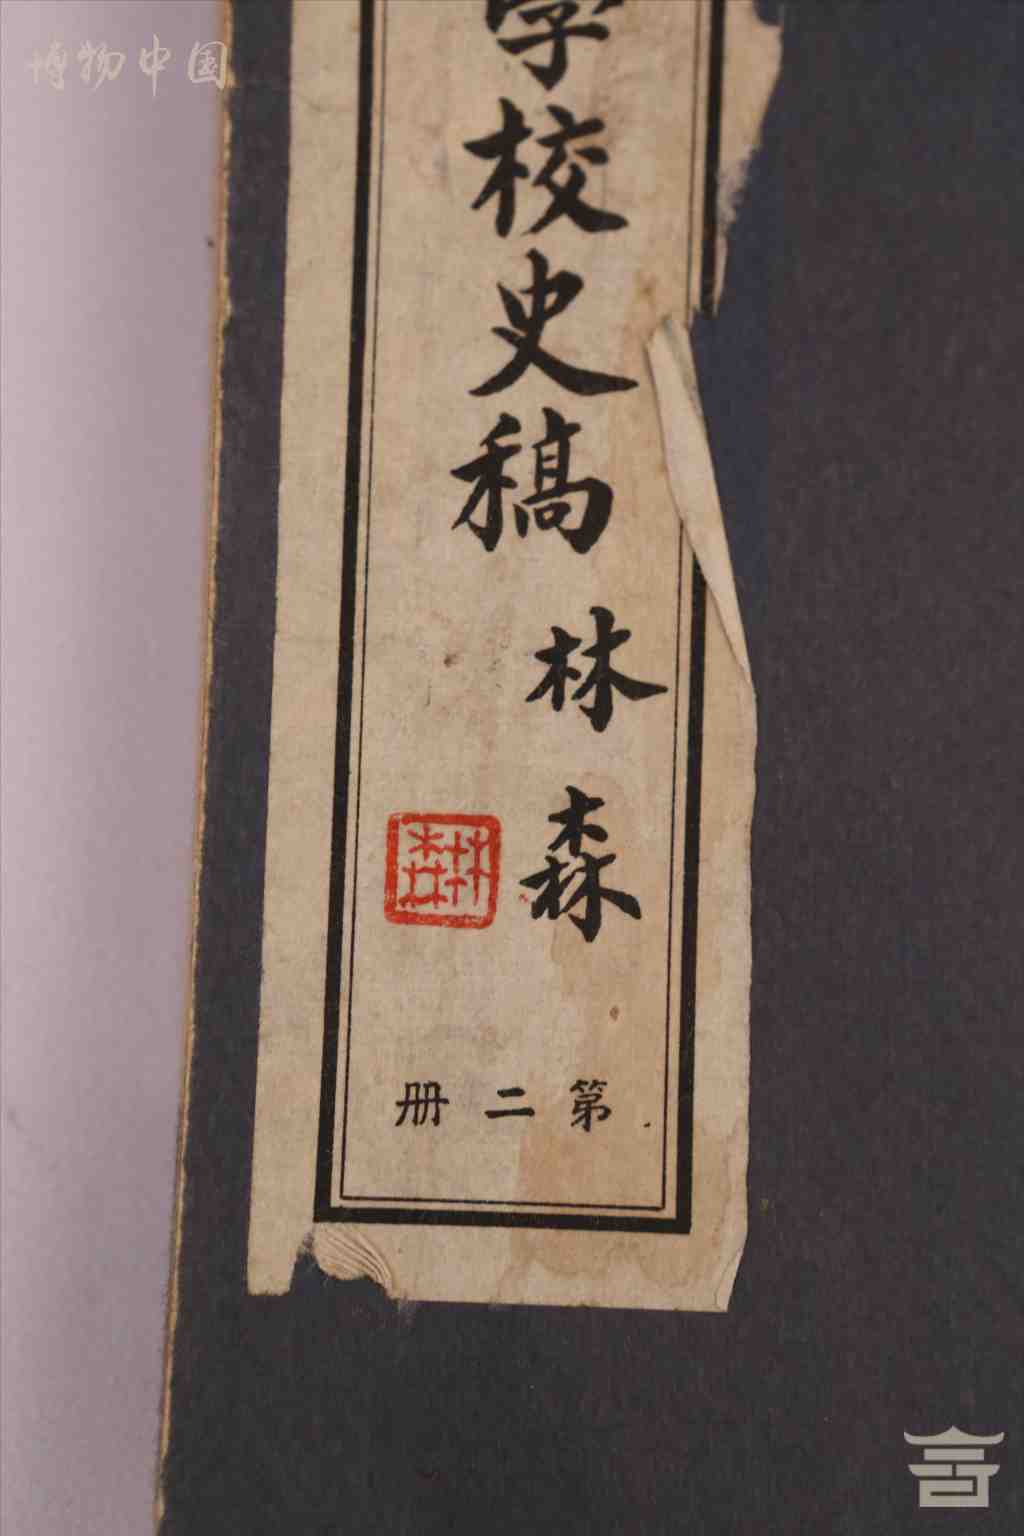 博物中国
學校史稿
林森
林森
第二册